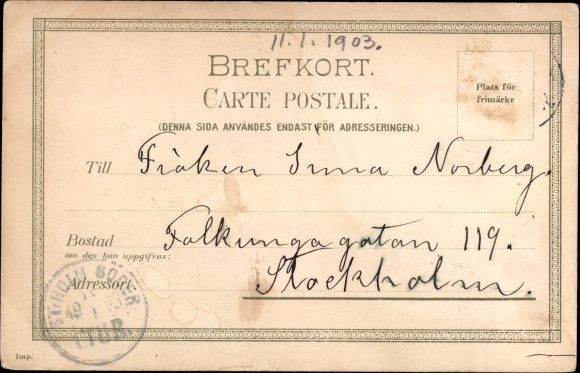 11.1.1903.
BREFKORT.
CARTE POSTALE.
(DENNA SIDA ANVÄNDES ENDAST FÖR ADRESSERINGEN.)
Plats för
frimärke
Till Fröken Irma Norberg.
Bostad Folkungagatan 119.
om den kan uppgifvas:
Adressort: Stockholm.
STHOLM SÖDER
1 TUR
Imp.